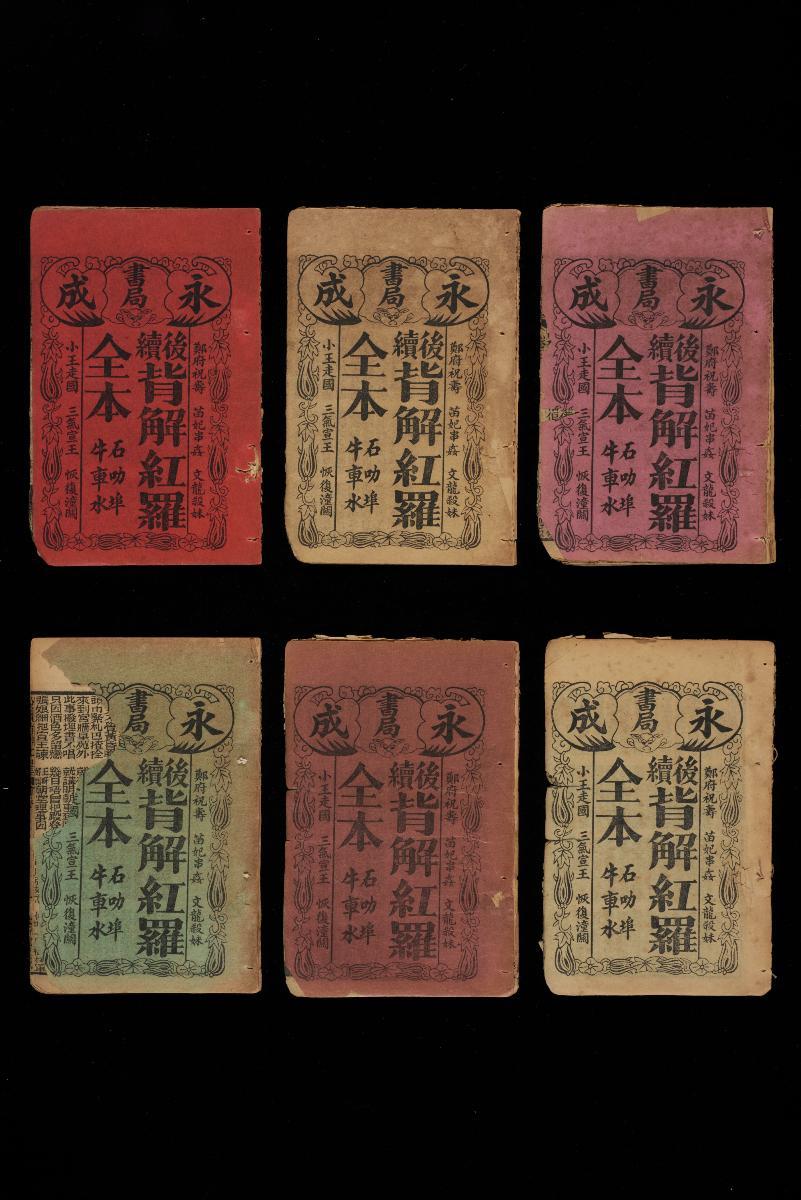 永書局成
鄭府祝壽 苗妃串姦 文龍殺妹
後續背解紅羅
全本
石叻埠
牛車水
小王走國 三氣宣王 恢復潼關
永書局成
鄭府祝壽 苗妃串姦 文龍殺妹
後續背解紅羅
全本
石叻埠
牛車水
小王走國 三氣宣王 恢復潼關
永書局成
鄭府祝壽 苗妃串姦 文龍殺妹
後續背解紅羅
全本
石叻埠
牛車水
小王走國 三氣宣王 恢復潼關
永書局
鄭府祝壽 苗妃串姦 文龍殺妹
後續背解紅羅
全本
石叻埠
牛車水
國 三氣宣王 恢復潼關
此事廢埋書不唱
只因酒色多留戀
永書局成
鄭府祝壽 苗妃串姦 文龍殺妹
後續背解紅羅
全本
石叻埠
牛車水
小王走國 三氣宣王 恢復潼關
永書局成
鄭府祝壽 苗妃串姦 文龍殺妹
後續背解紅羅
全本
石叻埠
牛車水
小王走國 三氣宣王 恢復潼關